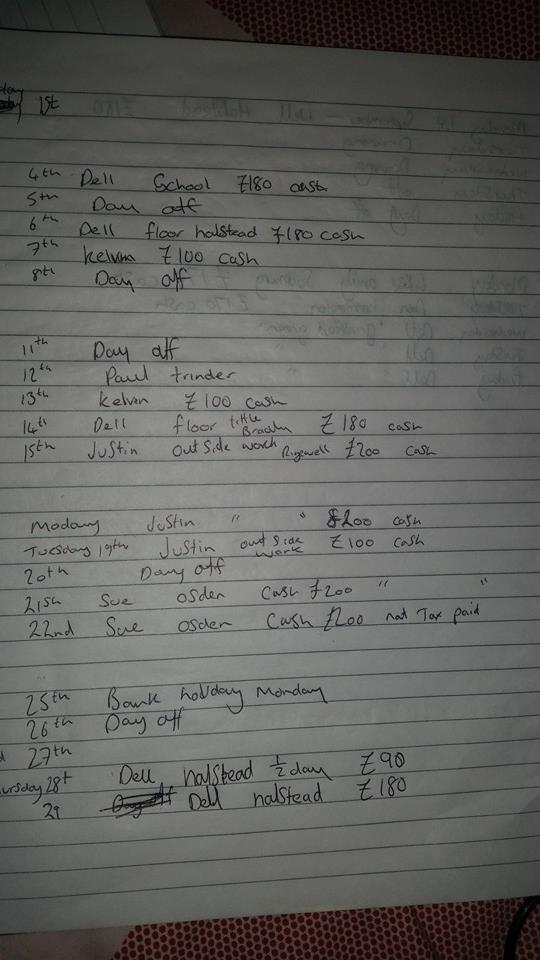 day 1st
4th Dell School £180 cash
5th Day off
6th Dell floor halstead £180 cash
7th Kelvin £100 cash
8th Day off
11th Day off
12th Paul trinder
13th Kelvin £100 cash
14th Dell floor little £180 cash
15th Justin outside work Ridgewell £200 cash
Moday Justin " " £200 cash
Tuesday 19th Justin outside work £100 cash
20th Day off
21sh Sue osden cash £200 " "
22nd Sue osden cash £200 not Tax paid
25th Bank holiday Monday
26th Day off
27th
ursday 28t Dell halstead 1/2 day £90
29 Dell halstead £180